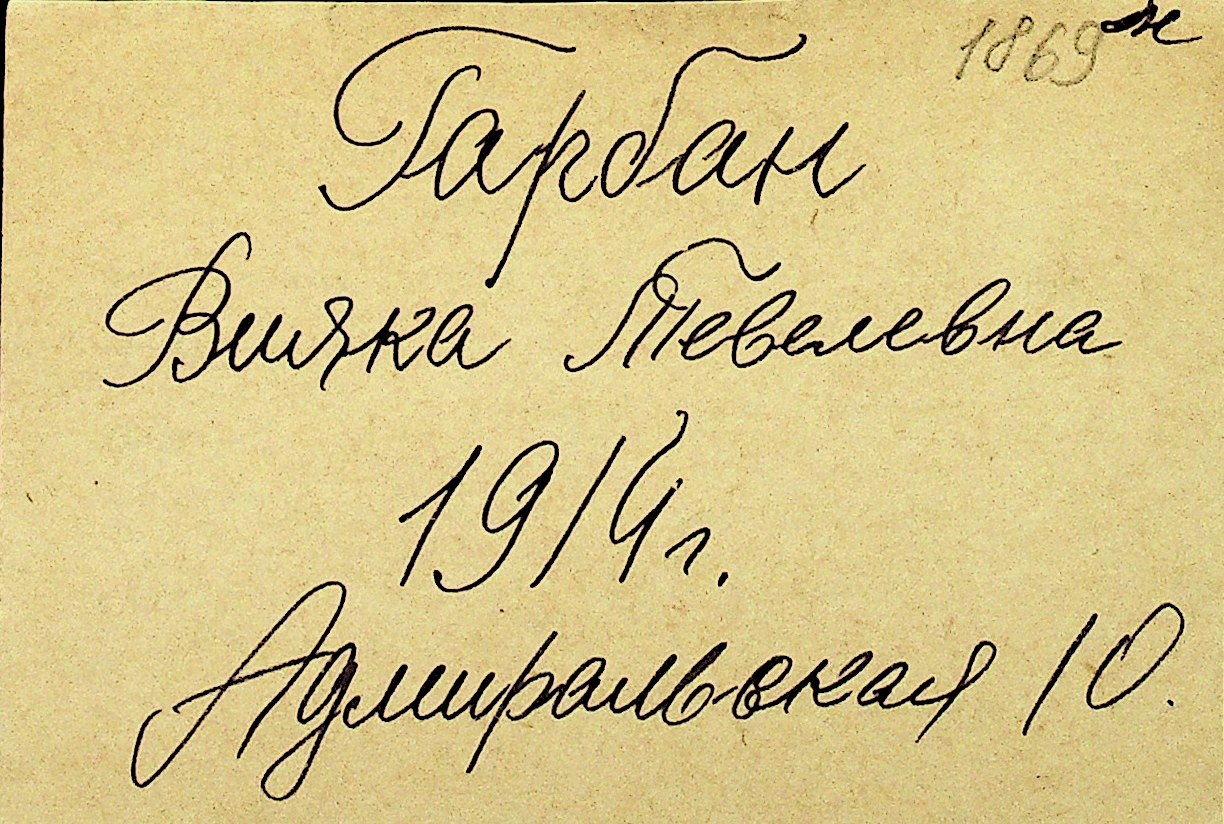 1869 н
Гарбан
Вияка Тевелевна
1914г.
Адмиральская 10.